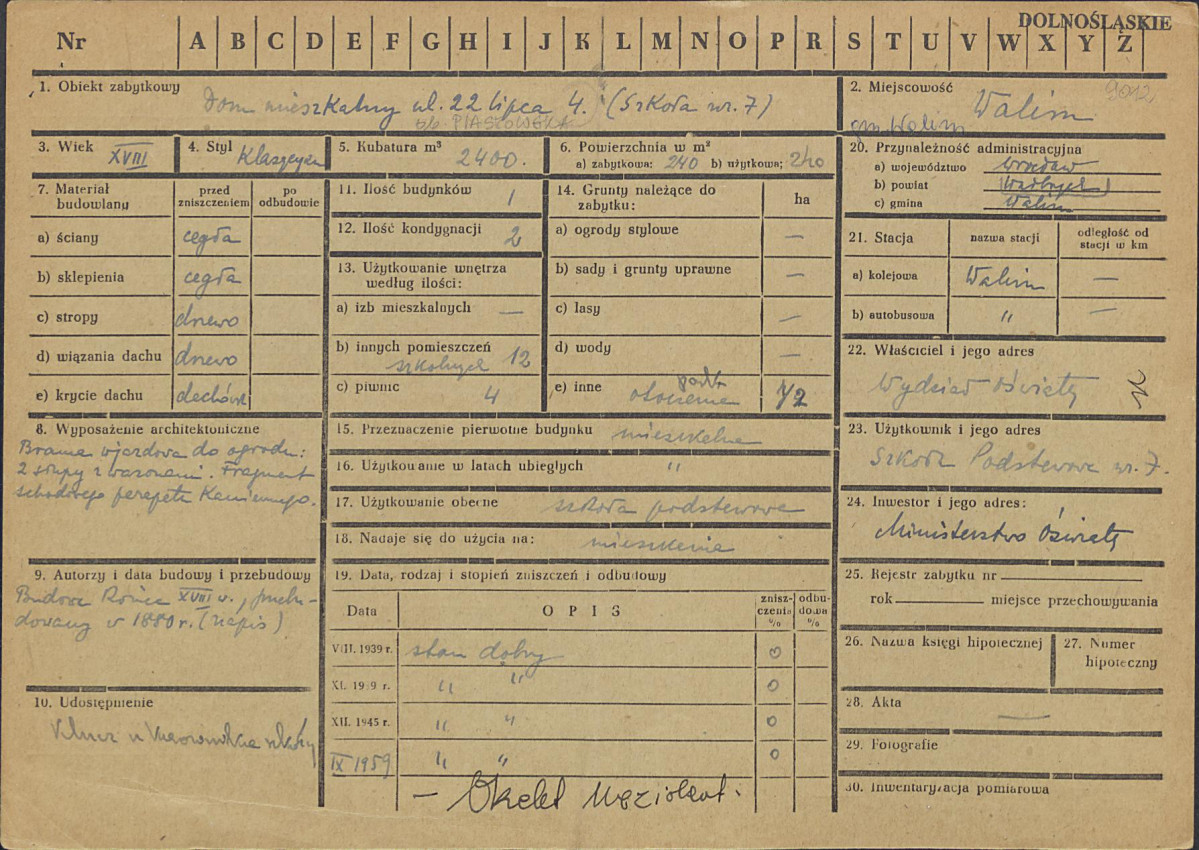 DOLNOŚLĄSKIE
Nr A B C D E F G H I J K L M N O P R S T U V W X Y Z
1. Obiekt zabytkowy
Dom mieszkalny ul. 22 lipca 4. (Szkoła nr. 7)
ob. PIASTOWSKA
2. Miejscowość
Walim
gm. Walim
3. Wiek XVIII
4. Styl
5. Kubatura m³ 2400.
6. Powierzchnia w m²
a) zabytkowa: 240 b) użytkowa: 240
20. Przynależność administracyjna
a) województwo wrocław
b) powiat (Wałbrzych)
c) gmina Walim
7. Materiał budowlany
przed zniszczeniem
po odbudowie
a) ściany cegła
b) sklepienia cegła
c) stropy drzewo
d) wiązania dachu drzewo
e) krycie dachu dachówk
11. Ilość budynków 1
12. Ilość kondygnacji 2
13. Użytkowanie wnętrza według ilości:
a) izb mieszkalnych —
b) innych pomieszczeń
szkolnych 12
c) piwnic 4
14. Grunty należące do zabytku:
ha
a) ogrody stylowe —
b) sady i grunty uprawne —
c) lasy —
d) wody —
e) inne otoczenie 1/2
21. Stacja
nazwa stacji
odległość od stacji w km
a) kolejowa Walim —
b) autobusowa " —
22. Właściciel i jego adres
Wydział Oświaty
8. Wyposażenie architektoniczne
Brama wjazdowa do ogrodu:
2 słupy z wazonami. Fragment
schodowego parapetu kamiennego.
15. Przeznaczenie pierwotne budynku mieszkalne
16. Użytkowanie w latach ubiegłych "
17. Użytkowanie obecne szkoła podstawowa
18. Nadaje się do użycia na: mieszkania
23. Użytkownik i jego adres
Szkoła Podstawowa nr. 7.
24. Inwestor i jego adres:
Ministerstwo Oświaty
9. Autorzy i data budowy i przebudowy
Budowa końca XVIII w., przebu-
dowany w 1880 r. (napis)
19. Data, rodzaj i stopień zniszczeń i odbudowy
Data
OPIS
zniszczenia %
odbudowa %
VIII. 1939 r. stan dobry 0
XI. 1939 r. " " 0
XII. 1945 r. " " 0
IX 1959 " " 0
25. Rejestr zabytku nr
rok miejsce przechowywania
26. Nazwa księgi hipotecznej
27. Numer hipoteczny
28. Akta —
29. Fotografie
30. Inwentaryzacja pomiarowa
10. Udostępnienie
Klucz u kierownika szkoły